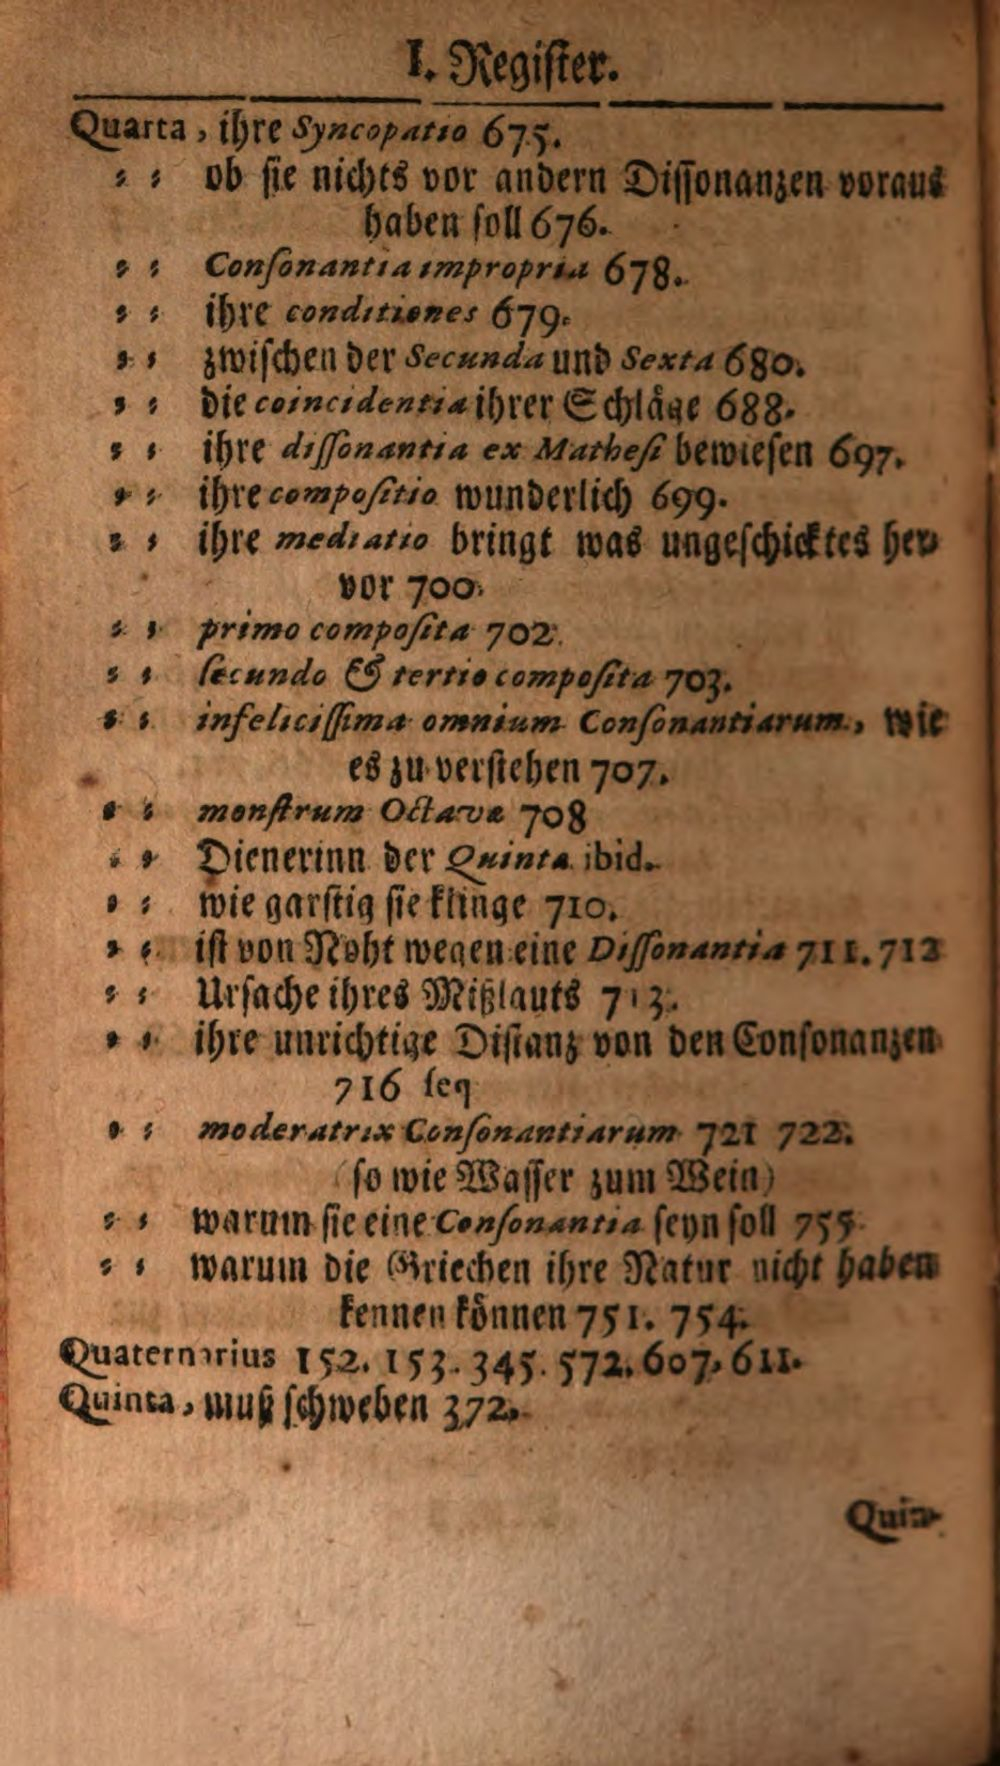 I. Register.
Quarta, ihre Syncopatio 675.
⸗ ⸗ ob sie nichts vor andern Dissonanzen voraus
haben soll 676.
⸗ ⸗ Consonantia impropria 678.
⸗ ⸗ ihre conditiones 679.
⸗ ⸗ zwischen der Secunda und Sexta 680.
⸗ ⸗ die coincidentia ihrer Schläge 688.
⸗ ⸗ ihre dissonantia ex Mathesi bewiesen 697.
⸗ ⸗ ihre compositio wunderlich 699.
⸗ ⸗ ihre mediatio bringt was ungeschicktes her⸗
vor 700.
⸗ ⸗ primo composita 702.
⸗ ⸗ secundo & tertio composita 703.
⸗ ⸗ infelicissima omnium Consonantiarum, wie
es zu verstehen 707.
⸗ ⸗ monstrum Octavæ 708
⸗ ⸗ Dienerinn der Quinta ibid.
⸗ ⸗ wie garstig sie klinge 710.
⸗ ⸗ ist von Noht wegen eine Dissonantia 711. 712
⸗ ⸗ Ursache ihres Mißlauts 713.
⸗ ⸗ ihre unrichtige Distanz von den Consonanzen
716 seq
⸗ ⸗ moderatrix Consonantiarum 721 722.
(so wie Wasser zum Wein)
⸗ ⸗ warum sie eine Consonantia seyn soll 755
⸗ ⸗ warum die Griechen ihre Natur nicht haben
kennen können 751. 754.
Quaternarius 152. 153. 345. 572. 607. 611.
Quinta, muß schweben 372.
Quin⸗